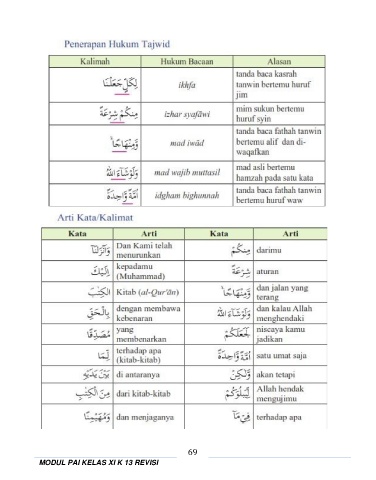 Penerapan Hukum Tajwid
Kalimah Hukum Bacaan Alasan
لِكُلٍّ جَعَلْنَا ikhfa tanda baca kasrah
tanwin bertemu huruf
jim
مِنكُمْ شِرْعَةً izhar syafāwi mim sukun bertemu
huruf syin
وَّمِنْهَاجًا ۗ mad iwād tanda baca fathah tanwin
bertemu alif dan di-
waqafkan
وَلَوْ شَآءَ اللّٰهُ mad wajib muttasil mad asli bertemu
hamzah pada satu kata
اُمَّةً وَّاحِدَةً idgham bighunnah tanda baca fathah tanwin
bertemu huruf waw
Arti Kata/Kalimat
Kata Arti Kata Arti
وَاَنْزَلْنَآ Dan Kami telah
menurunkan مِنكُمْ darimu
اِلَيْكَ kepadamu
(Muhammad) شِرْعَةً aturan
الْكِتٰبَ Kitab (al-Qur'ān) وَّمِنْهَاجًا ۗ dan jalan yang
terang
بِالْحَقِّ dengan membawa
kebenaran وَلَوْ شَآءَ اللّٰهُ dan kalau Allah
menghendaki
مُصَدِّقًا yang
membenarkan لَجَعَلَكُمْ niscaya kamu
jadikan
لِّمَا terhadap apa
(kitab-kitab) اُمَّةً وَّاحِدَةً satu umat saja
بَيْنَ يَدَيْهِ di antaranya وَّلٰكِنْ akan tetapi
مِنَ الْكِتٰبِ dari kitab-kitab لِّيَبْلُوَكُمْ Allah hendak
mengujimu
وَمُهَيْمِنًا dan menjaganya فِيْ مَآ terhadap apa
69
MODUL PAI KELAS XI K 13 REVISI